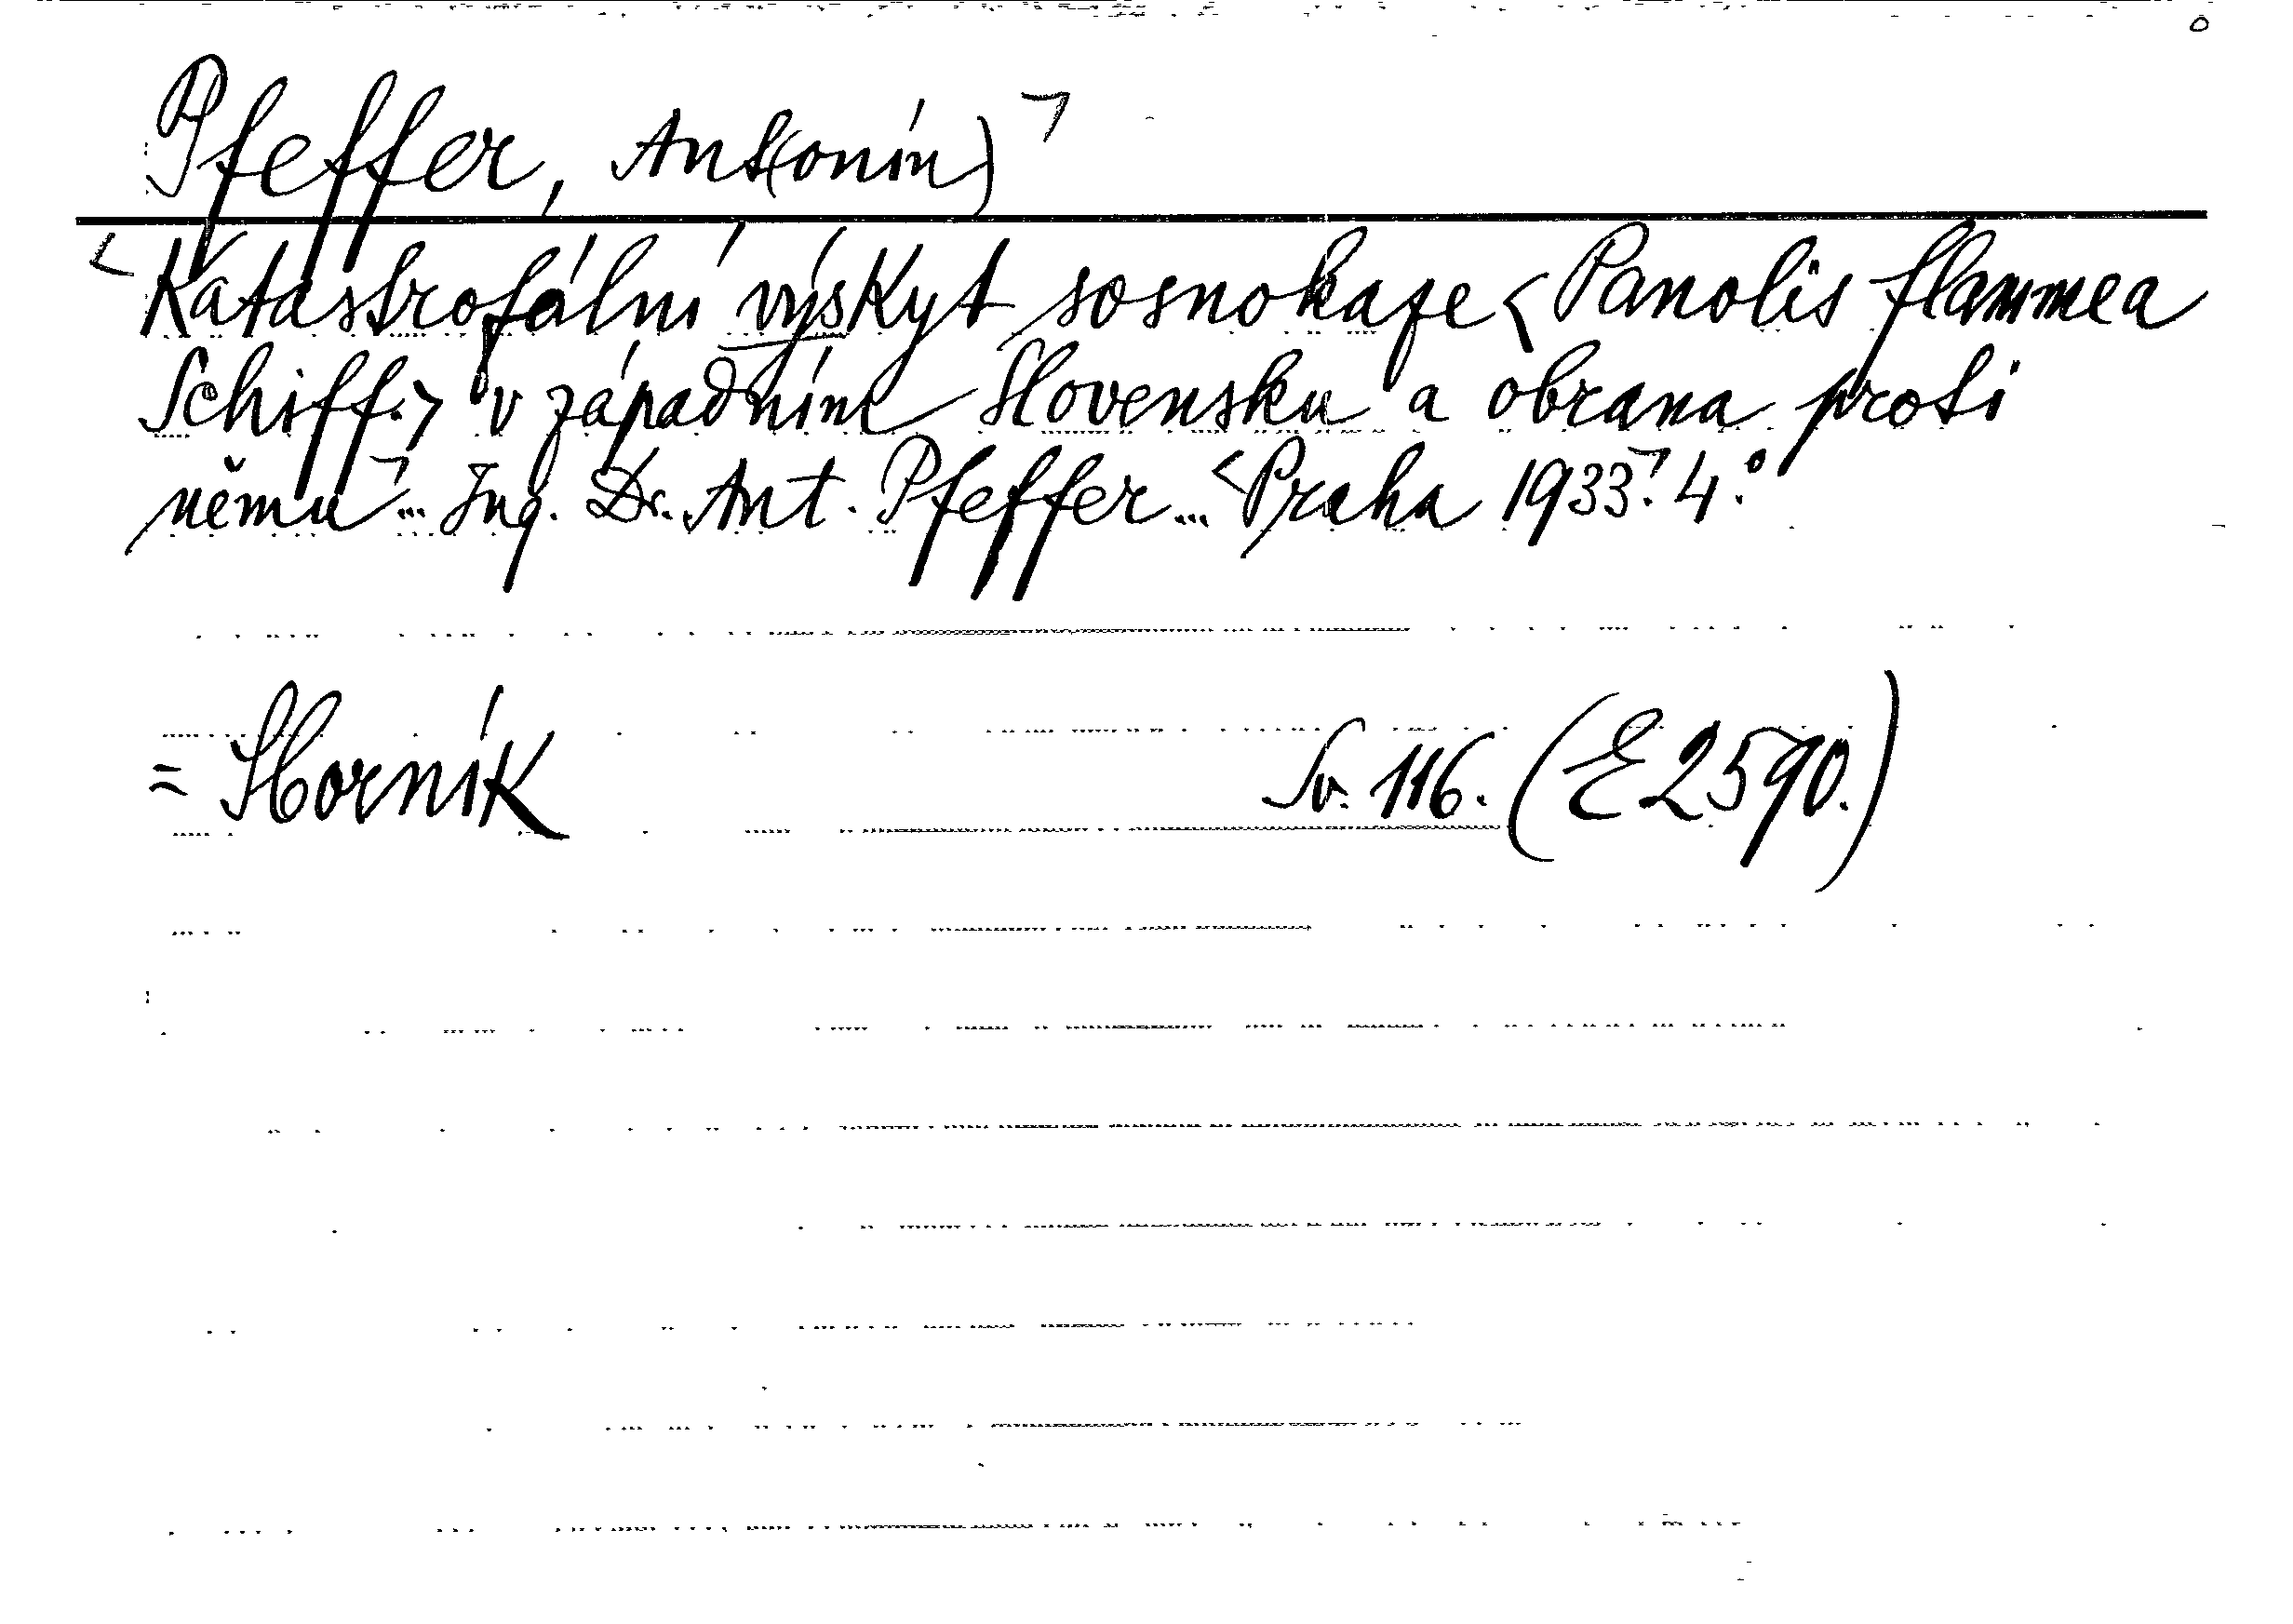 Pfeffer, Ant(onín)
Katastrofální výskyt sosnokaze <Panolis flammea
Schiff.> v západním Slovensku a obrana proti
němu ... Ing. Dr. Ant. Pfeffer ... Praha 1933. 4.°
= Horník Sv. 116. (E 2590.)